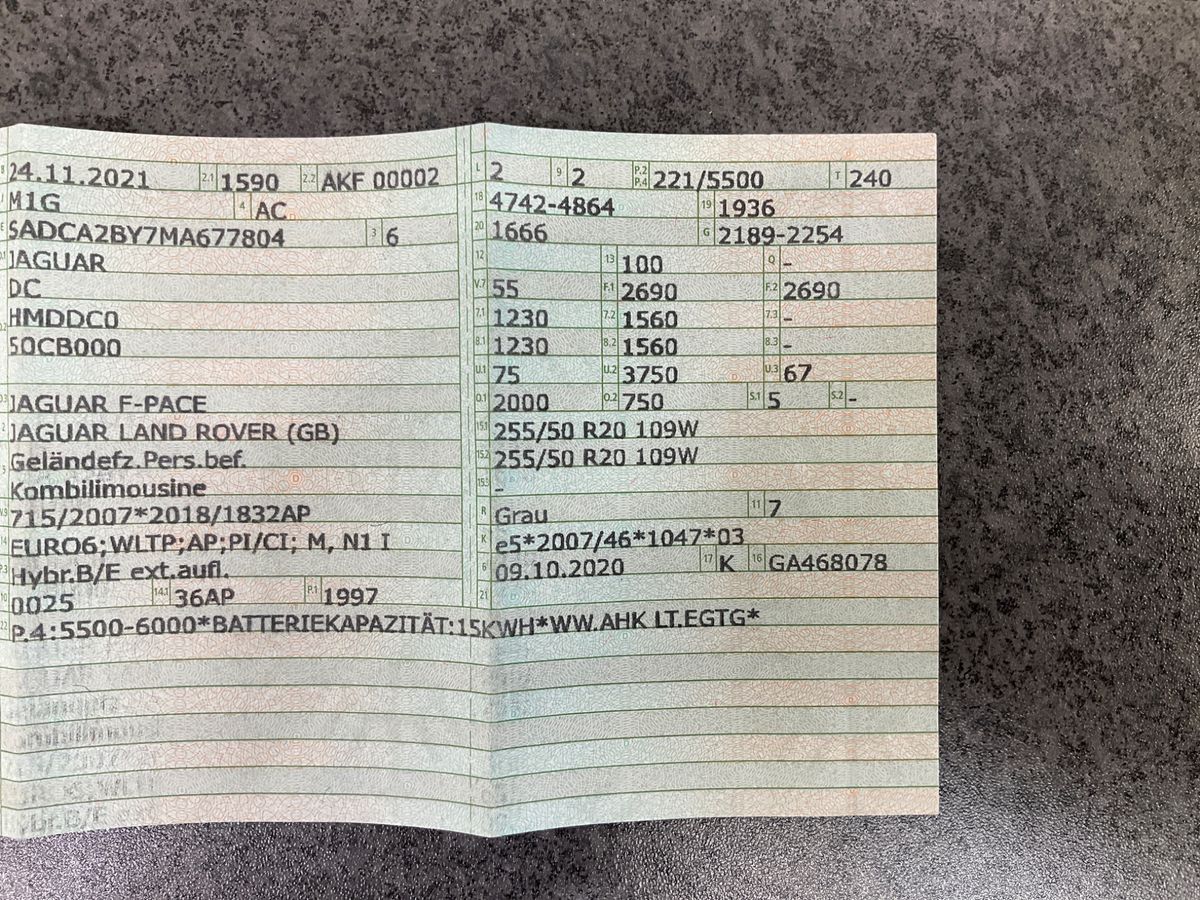 24.11.2021 2.1 1590 2.2 AKF 00002
M1G 4 AC
SADCA2BY7MA677804 3 6
JAGUAR
DC
HMDDC0
50CB000
JAGUAR F-PACE
JAGUAR LAND ROVER (GB)
Geländefz.Pers.bef.
Kombilimousine
715/2007*2018/1832AP
EURO6;WLTP;AP;PI/CI; M, N1 I
Hybr.B/E ext.aufl.
10 0025 14.1 36AP P.1 1997
L 2 9 2 P.2 P.4 221/5500 T 240
18 4742-4864 19 1936
20 1666 G 2189-2254
12 13 100 Q -
V.7 55 F.1 2690 F.2 2690
7.1 1230 7.2 1560 7.3 -
8.1 1230 8.2 1560 8.3 -
U.1 75 U.2 3750 U.3 67
O.1 2000 O.2 750 S.1 5 S.2 -
15.1 255/50 R20 109W
15.2 255/50 R20 109W
15.3 -
R Grau 11 7
K e5*2007/46*1047*03
6 09.10.2020 17 K 16 GA468078
21
22 P.4:5500-6000*BATTERIEKAPAZITÄT:15KWH*WW.AHK LT.EGTG*